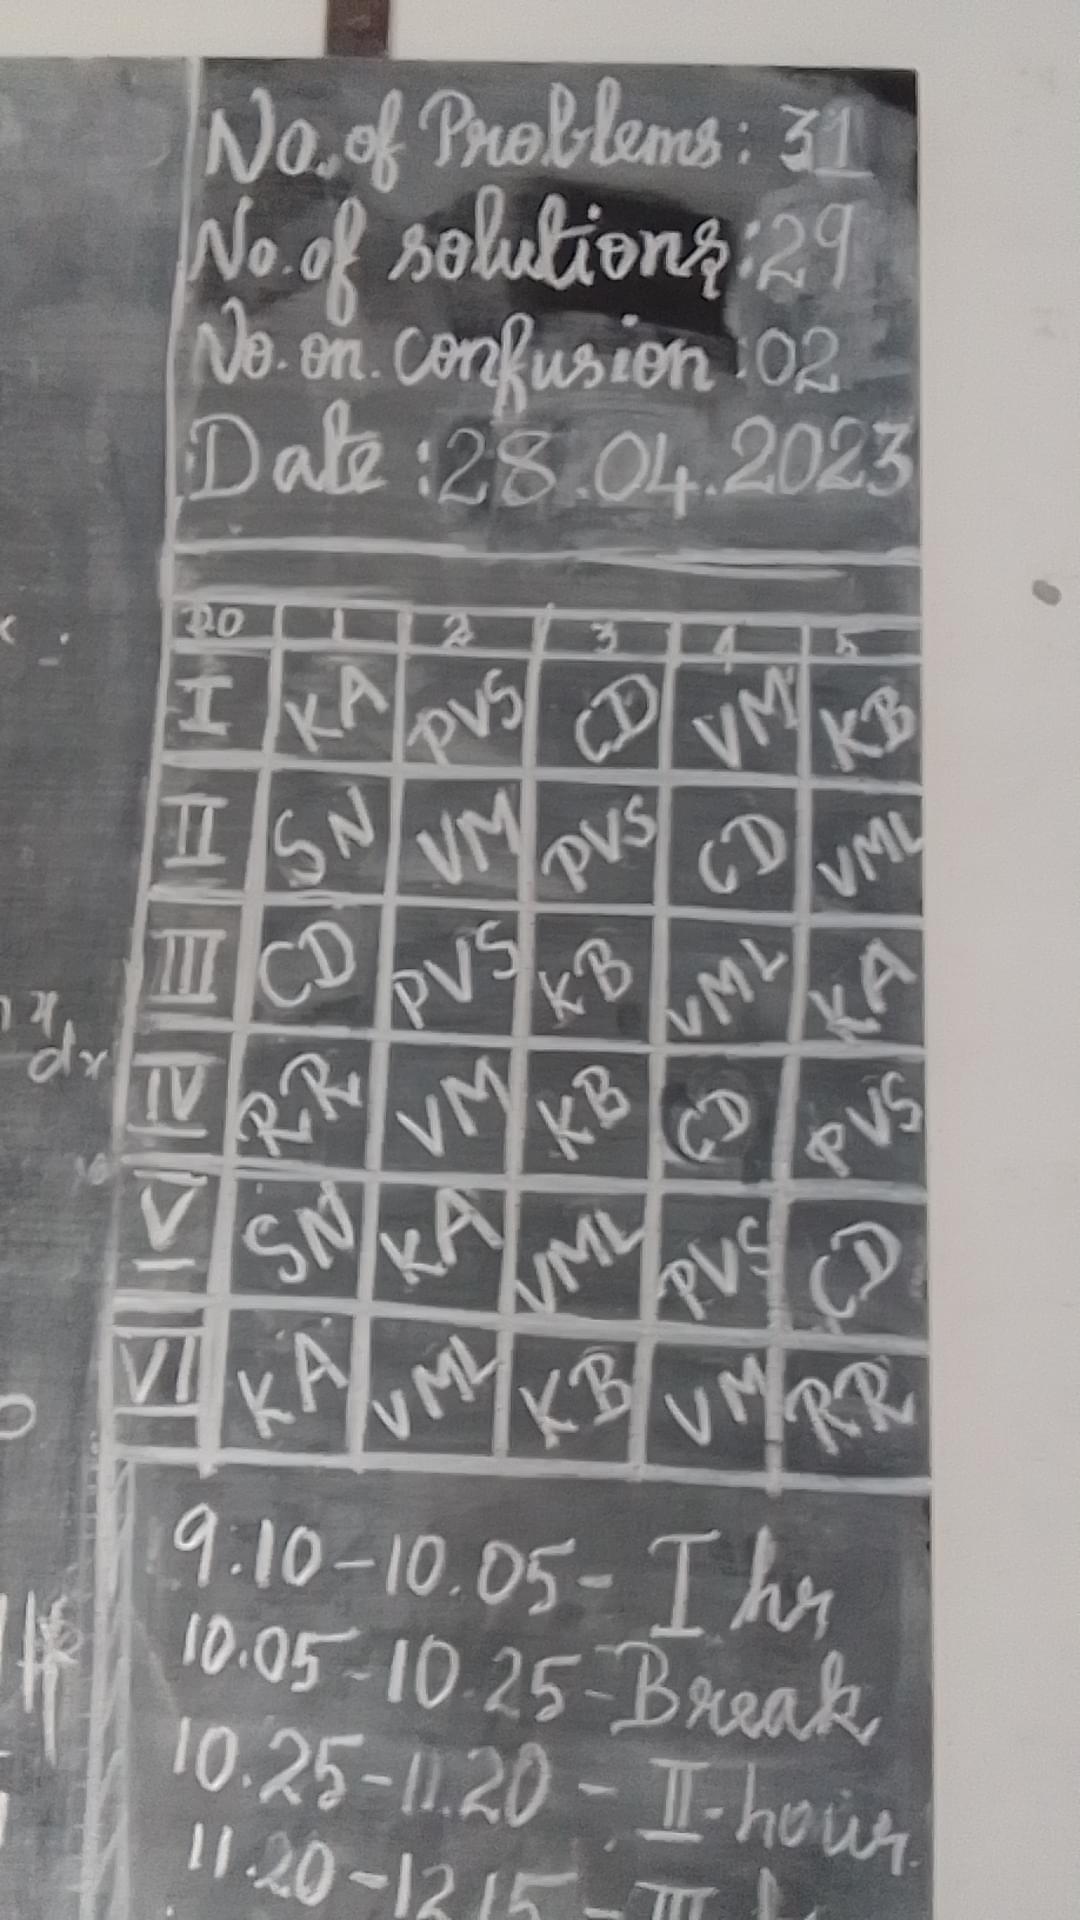 No. of Problems: 31
No. of solutions: 29
No. on. confusion: 02
Date: 28.04.2023
DO 1 2 3 4 5
I KA PVS CD VM KB
II SN VM PVS CD VML
III CD PVS KB VML KA
IV RR VM KB CD PVS
V SN KA VML PVS CD
VI KA VML KB VM RR
9.10-10.05- I hr
10.05-10.25-Break
10.25-11.20 - II-hour.
11.20-12.15-III
dx